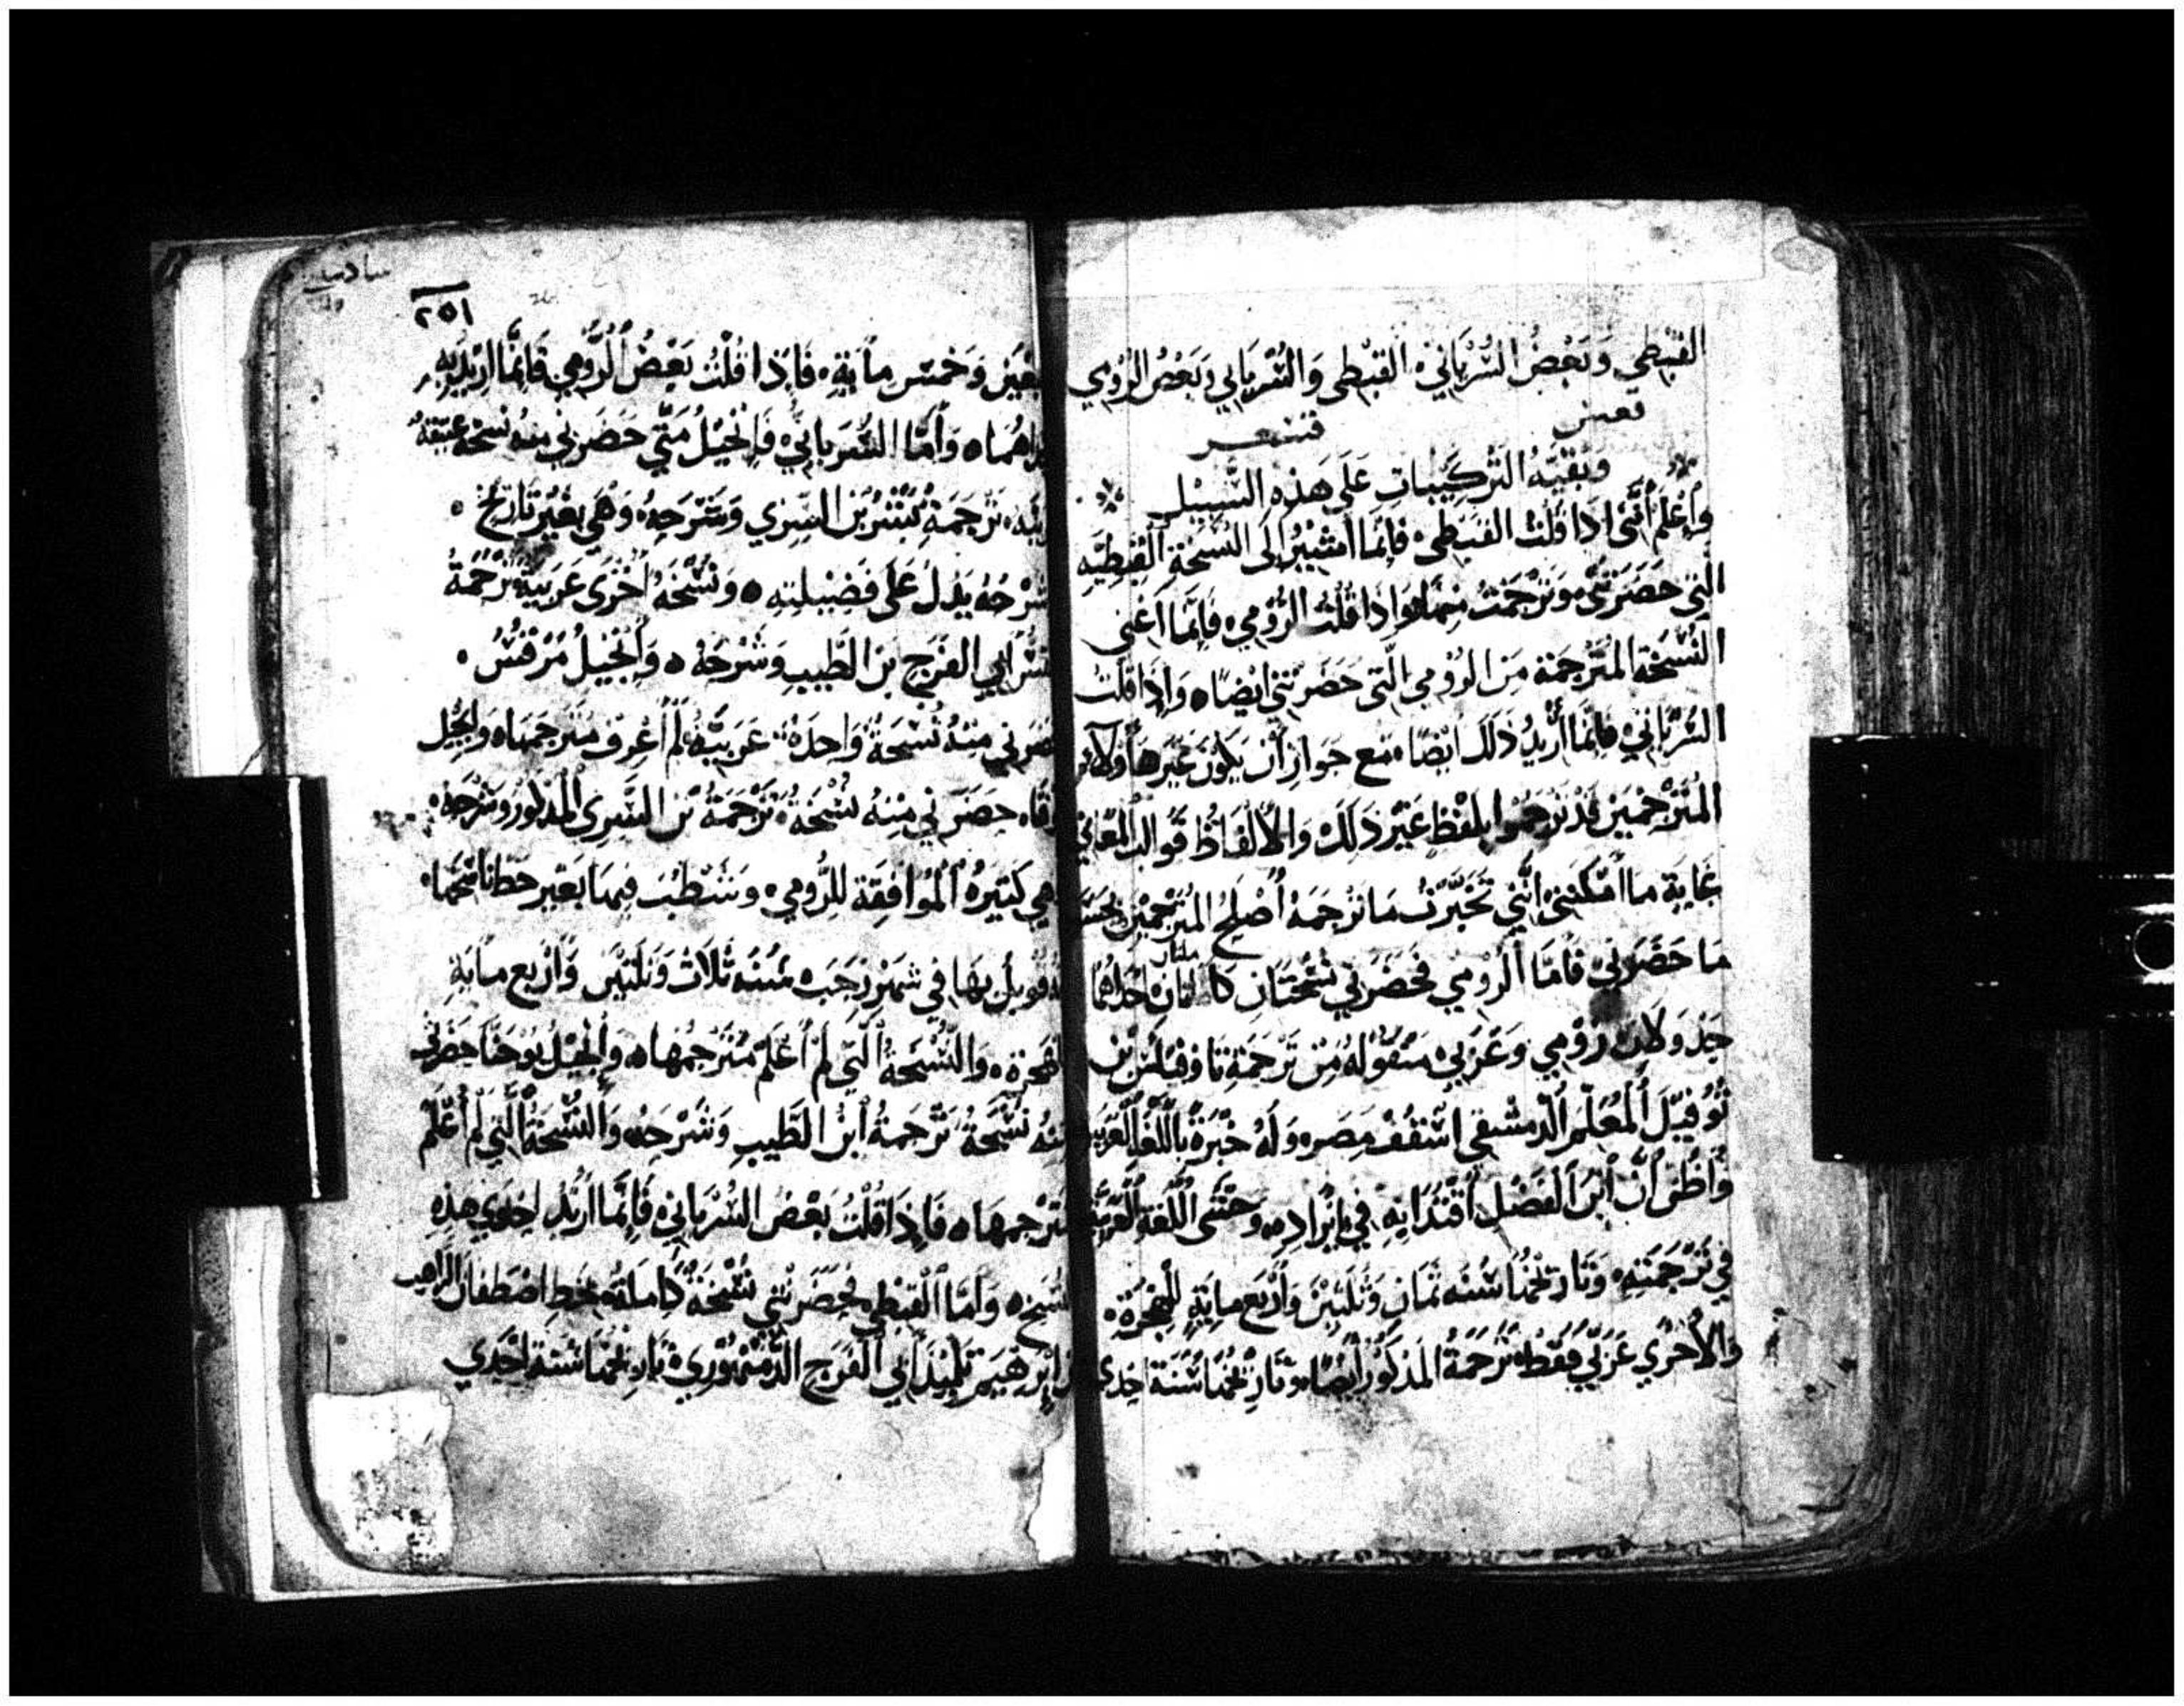 القبطي وبعض السرياني، القبطي والسرياني وبعض الرومي
قعس قسعر
وبقية التركيبات على هذه السبيل
واعلم أنني اذا قلت القبطي، فانما اشير الى النسخة القبطيه
التي حضرتني وترجمت منها، واذا قلت الرومي، فانما اعني
النسخة المترجمة من الرومي التي حضرتني ايضا، واذا قلت
السرياني، فانما أريد ذلك ايضا، مع جواز أن يكون غيرها ولان
المترجمين قد ترجموا بلفظ غير ذلك، والالفاظ قوالب المعاني
غاية ما امكنني انني تخيرت ما ترجمه أصلح المترجمين بحسب
ما حضرني، فأما الرومي فحضرني نسختان كاملتان احداهما
جدولان رومي وعربي، منقوله من ترجمة تاوفيلس بن
توفيل المعلم الدمشقي اسقف مصر، وله خبرة باللغة العربية
وأظن أن أبن الفضل أقتدا به في إيراده، وحتى اللغة العربية
في ترجمته، وتاريخها سنه ثمان وثلثين وأربع ماية للهجرة،
والأخري عربي فقط، ترجمة المذكور أيضا، وتاريخها سنة احدي
٢٥١
وخمس مأية، فإذا قلت بعض الرومي فإنما اريد به
وأما السرياني، فإنجيل متي حضرني منه نسخة عتيقة
ترجمة بشر بن السري وشرحه، وهي بغير تاريخ،
شرحه يدل على فضيلته، ونسخه أخرى عربية ترجمة
أبي الفرج بن الطيب وشرحه، وإنجيل مرقس،
حضرني منه نسخة واحدة عربية، لم أعرف مترجمها، وإنجيل
لوقا، حضرني منه نسخة، ترجمة بن السري المذكور وشرحه،
هي كثيرة الموافقة للرومي، وشطب فيها بغير خط ناسخها،
قوبل بها في شهر رجب، سنه ثلاث وثلثين وأربع ماية
للهجرة، والنسخة التي لم أعلم مترجمها، وإنجيل يوحنا حضرني
منه نسخة، ترجمة أبن الطيب وشرحه، والنسخة التي لم أعلم
مترجمها، فإذا قلت بعض السرياني، فإنما أريد احدي هذه
النسخ، وأما القبطي فحضرتني نسخة كاملة، بخط اصطفان الراهب
بن ابرهيم تلميذ أبي الفرج الدمنهوري، تاريخها سنة احدي